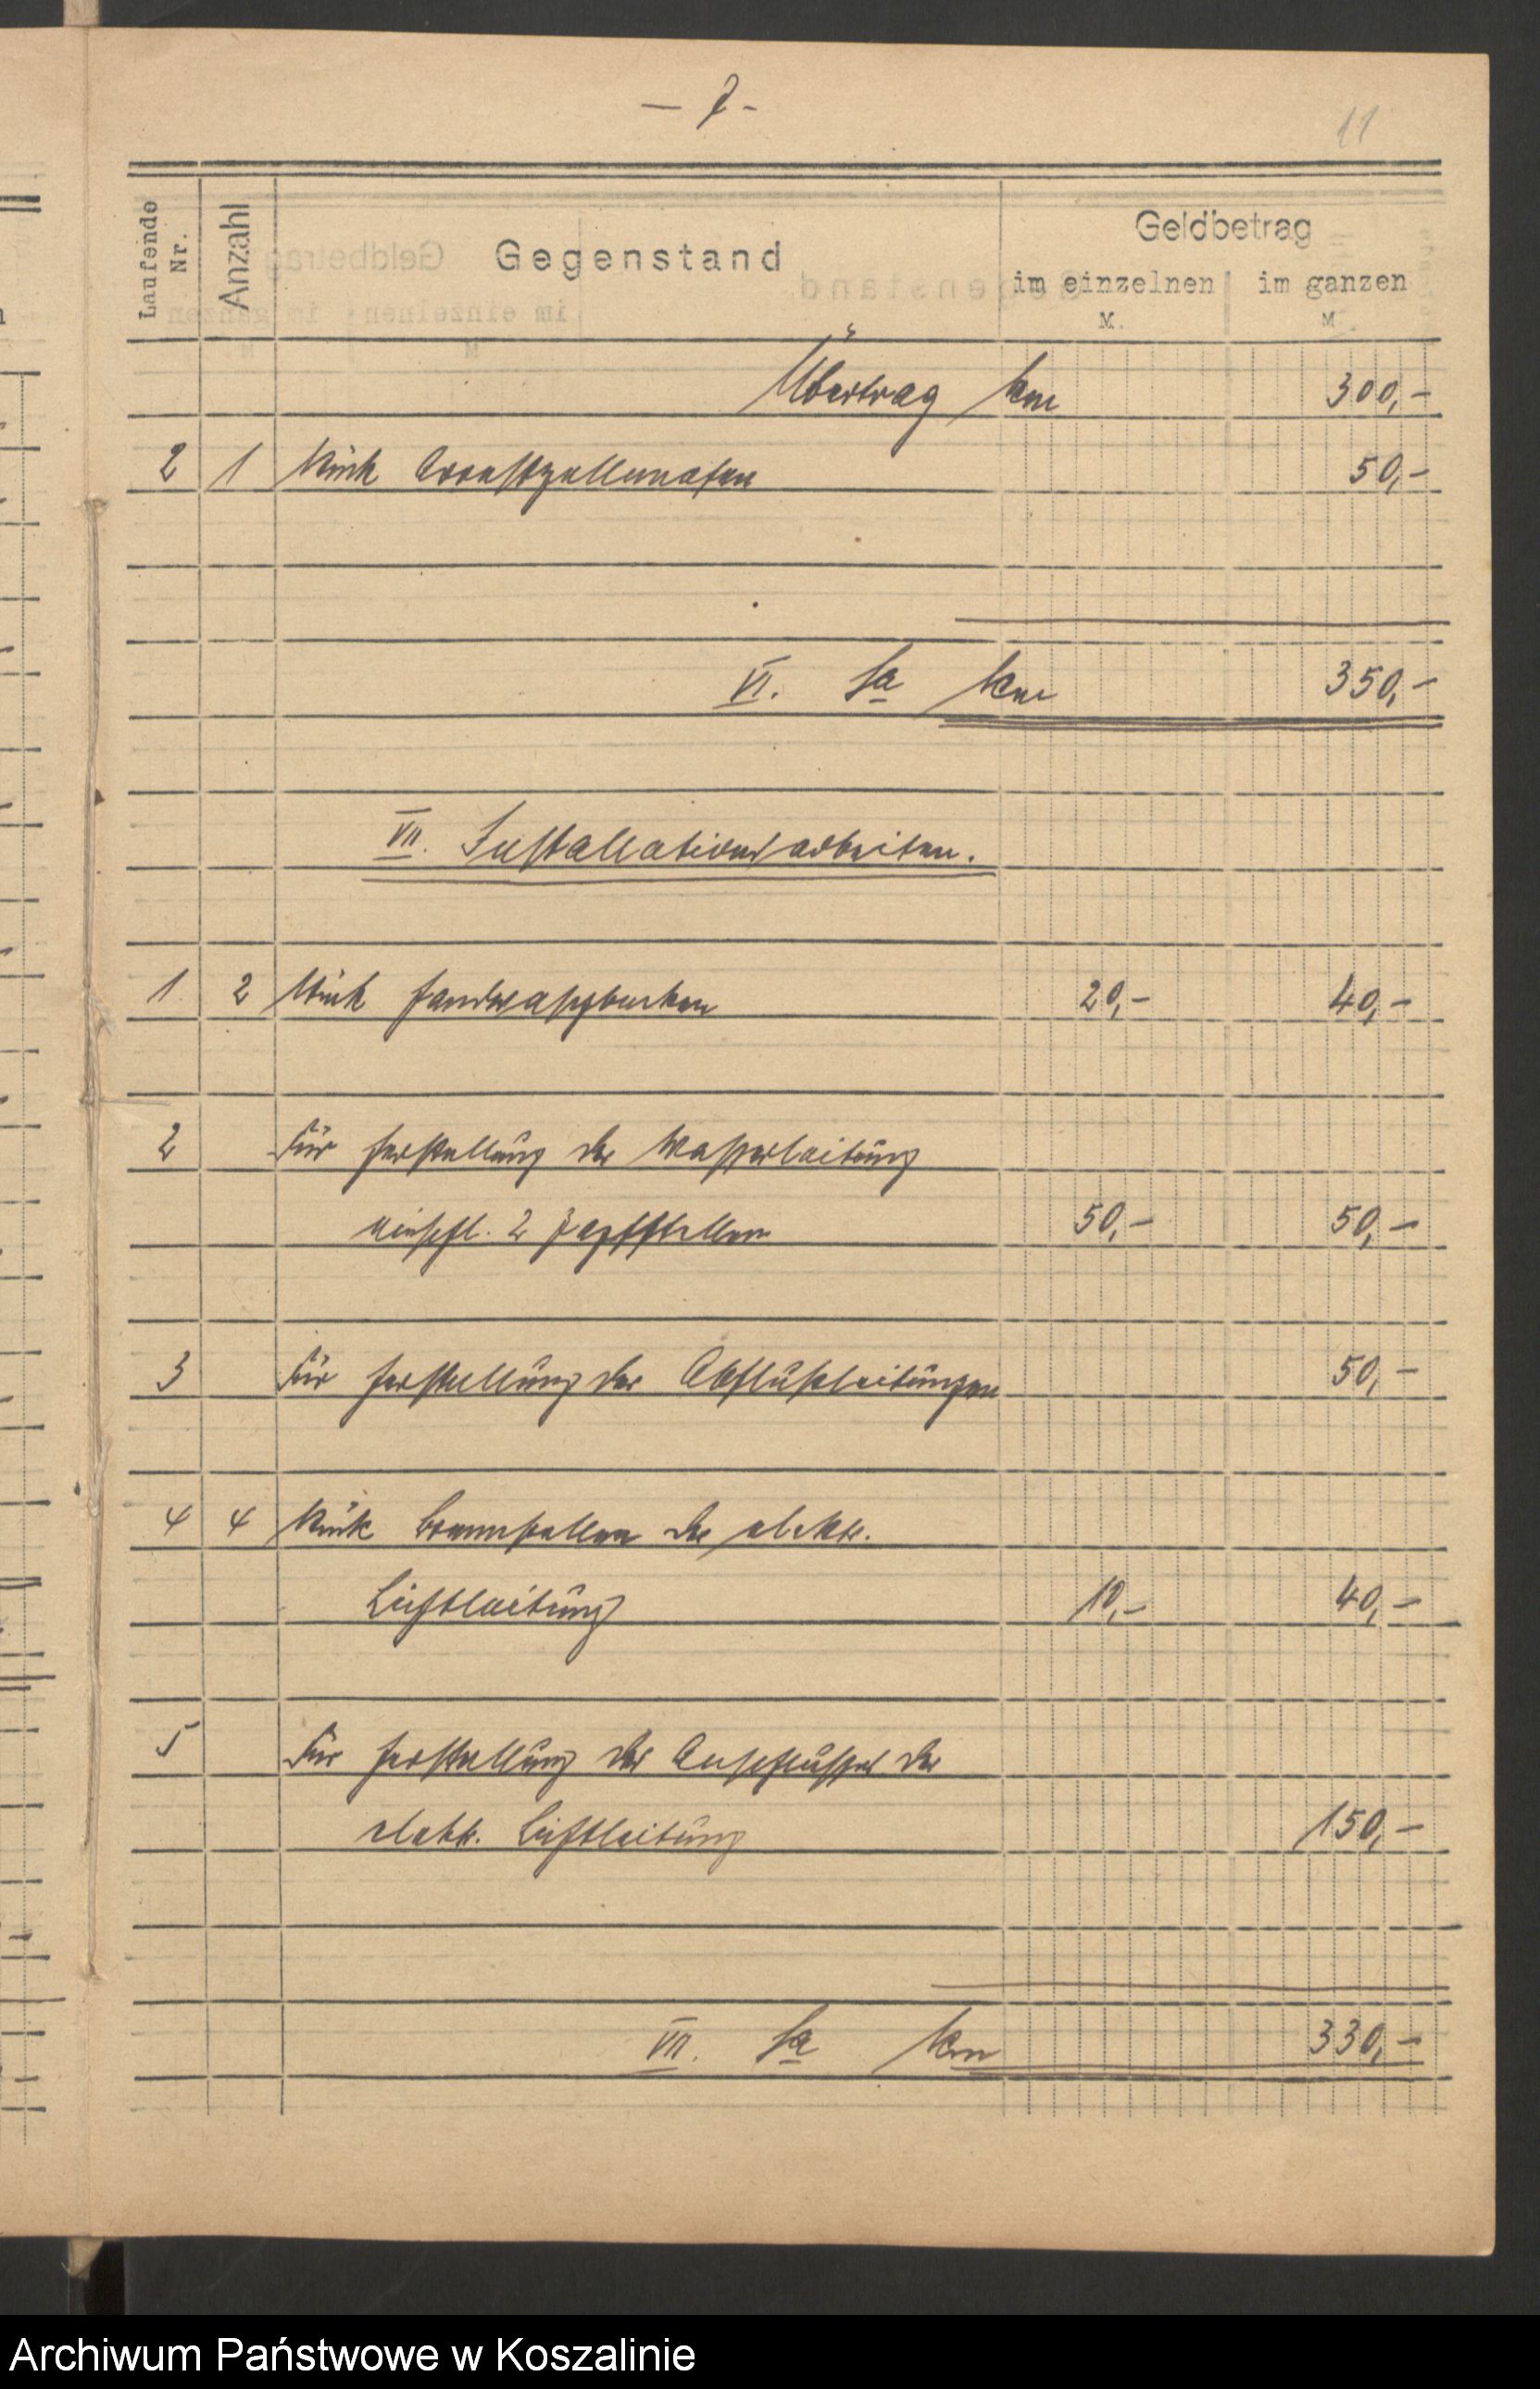 - 7 -
11
Laufende Nr.
Anzahl
Gegenstand
Geldbetrag
im einzelnen
im ganzen
M.
M
Übertrag 300,-
2 1 Stück Arrestzellenofen 50,-
VI. Sa 350,-
VII. Installationsarbeiten.
1 2 Stück Handwaschbecken 20,- 40,-
2 Für Herstellung der Wasserleitung
einschl. 2 Zapfstellen 50,- 50,-
3 Für Herstellung der Abflußleitungen 50,-
4 4 Stück Brennstellen der elektr.
Lichtleitung 10,- 40,-
5 Für Herstellung des Anschlusses der
elektr. Lichtleitung 150,-
VII. Sa 330,-
Archiwum Państwowe w Koszalinie